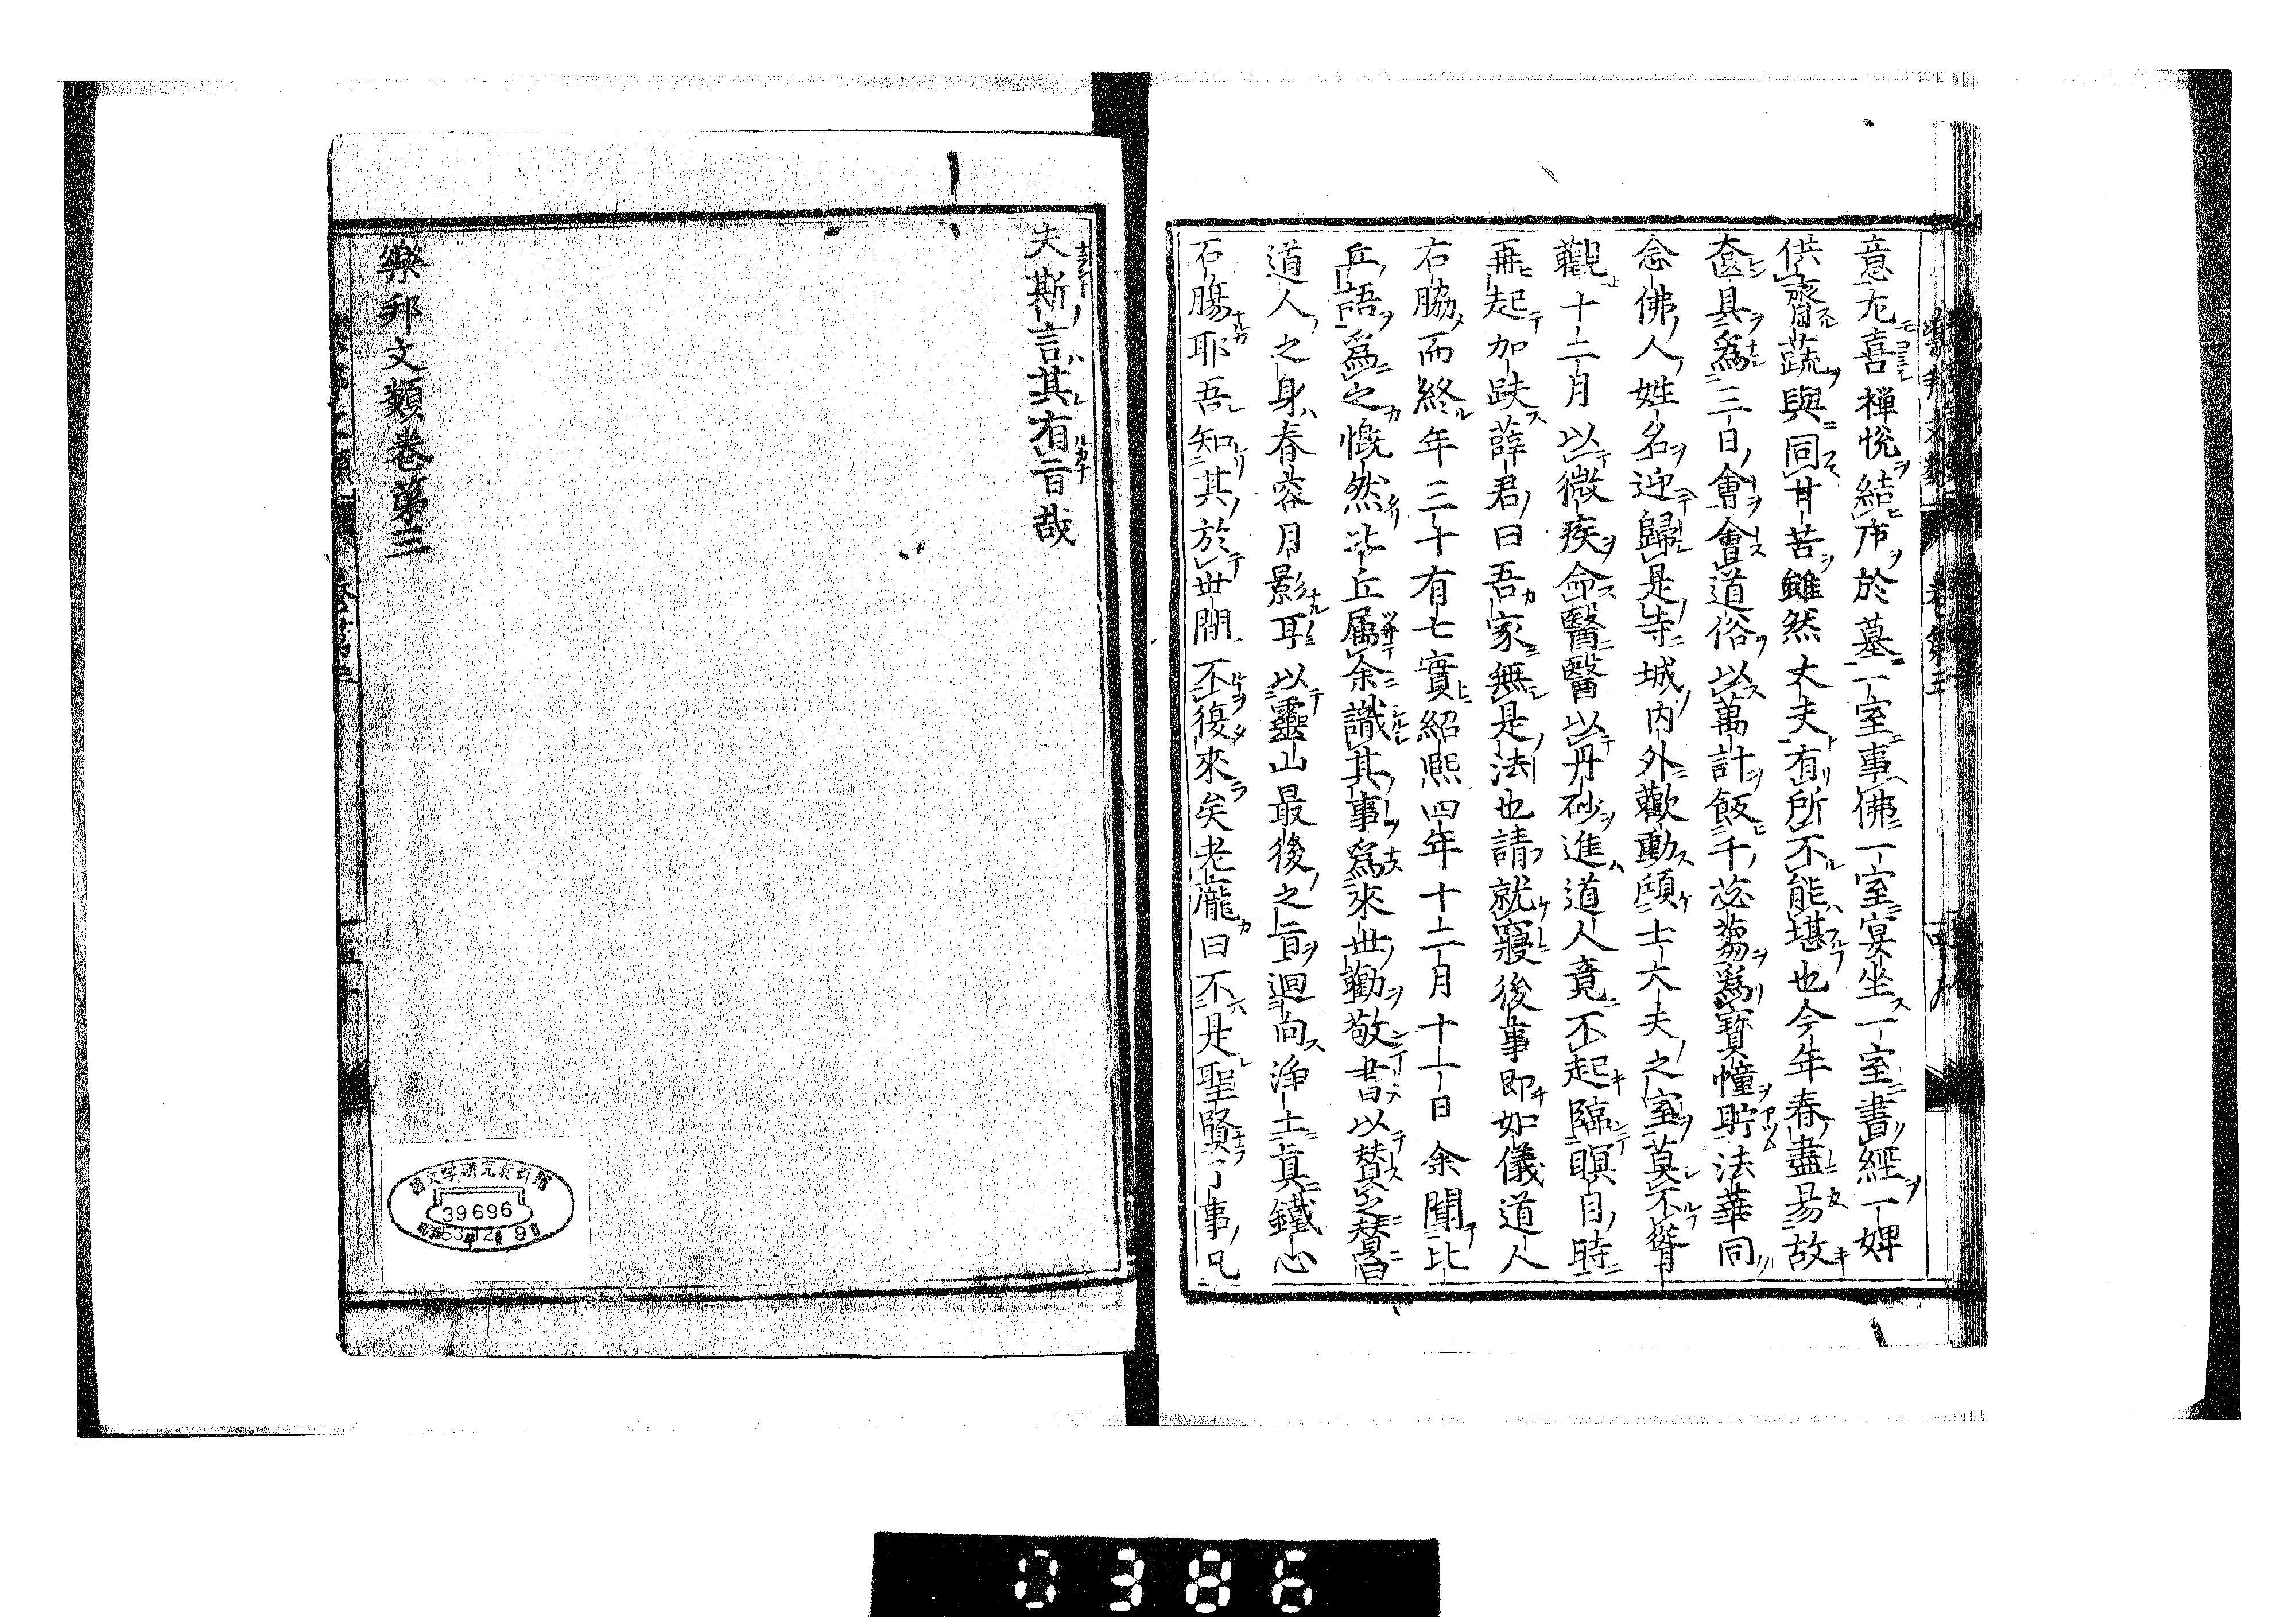 意尤喜禪悅結庐於墓一室事佛一室宴坐一室書經一婢
供齋蔬與同甘苦雖然丈夫有所不能堪也今年春盡易故
奩具爲三日會會道俗以萬計飯千苾蒭爲寶幢貯法華同
念佛人姓名迎歸是寺城内外歡動傾士大夫之室莫不聳
觀十二月以微疾命醫醫以丹砂進道人竟不起臨瞑目時
再起加趺薛君曰吾家無是法也請就寢後事即如儀道人
右脇而終年三十有七實紹熙四年十二月十一日余聞比
丘語爲之慨然比丘屬余識其事爲來世勸敬書以賛之賛曰
道人之身春容月影耳以靈山最後之旨迴向淨土眞鐵心
石腸耶吾知其於世間不復來矣老龐曰不是聖賢了事凡
夫斯言其有旨哉
樂邦文類卷第三
39696
0386